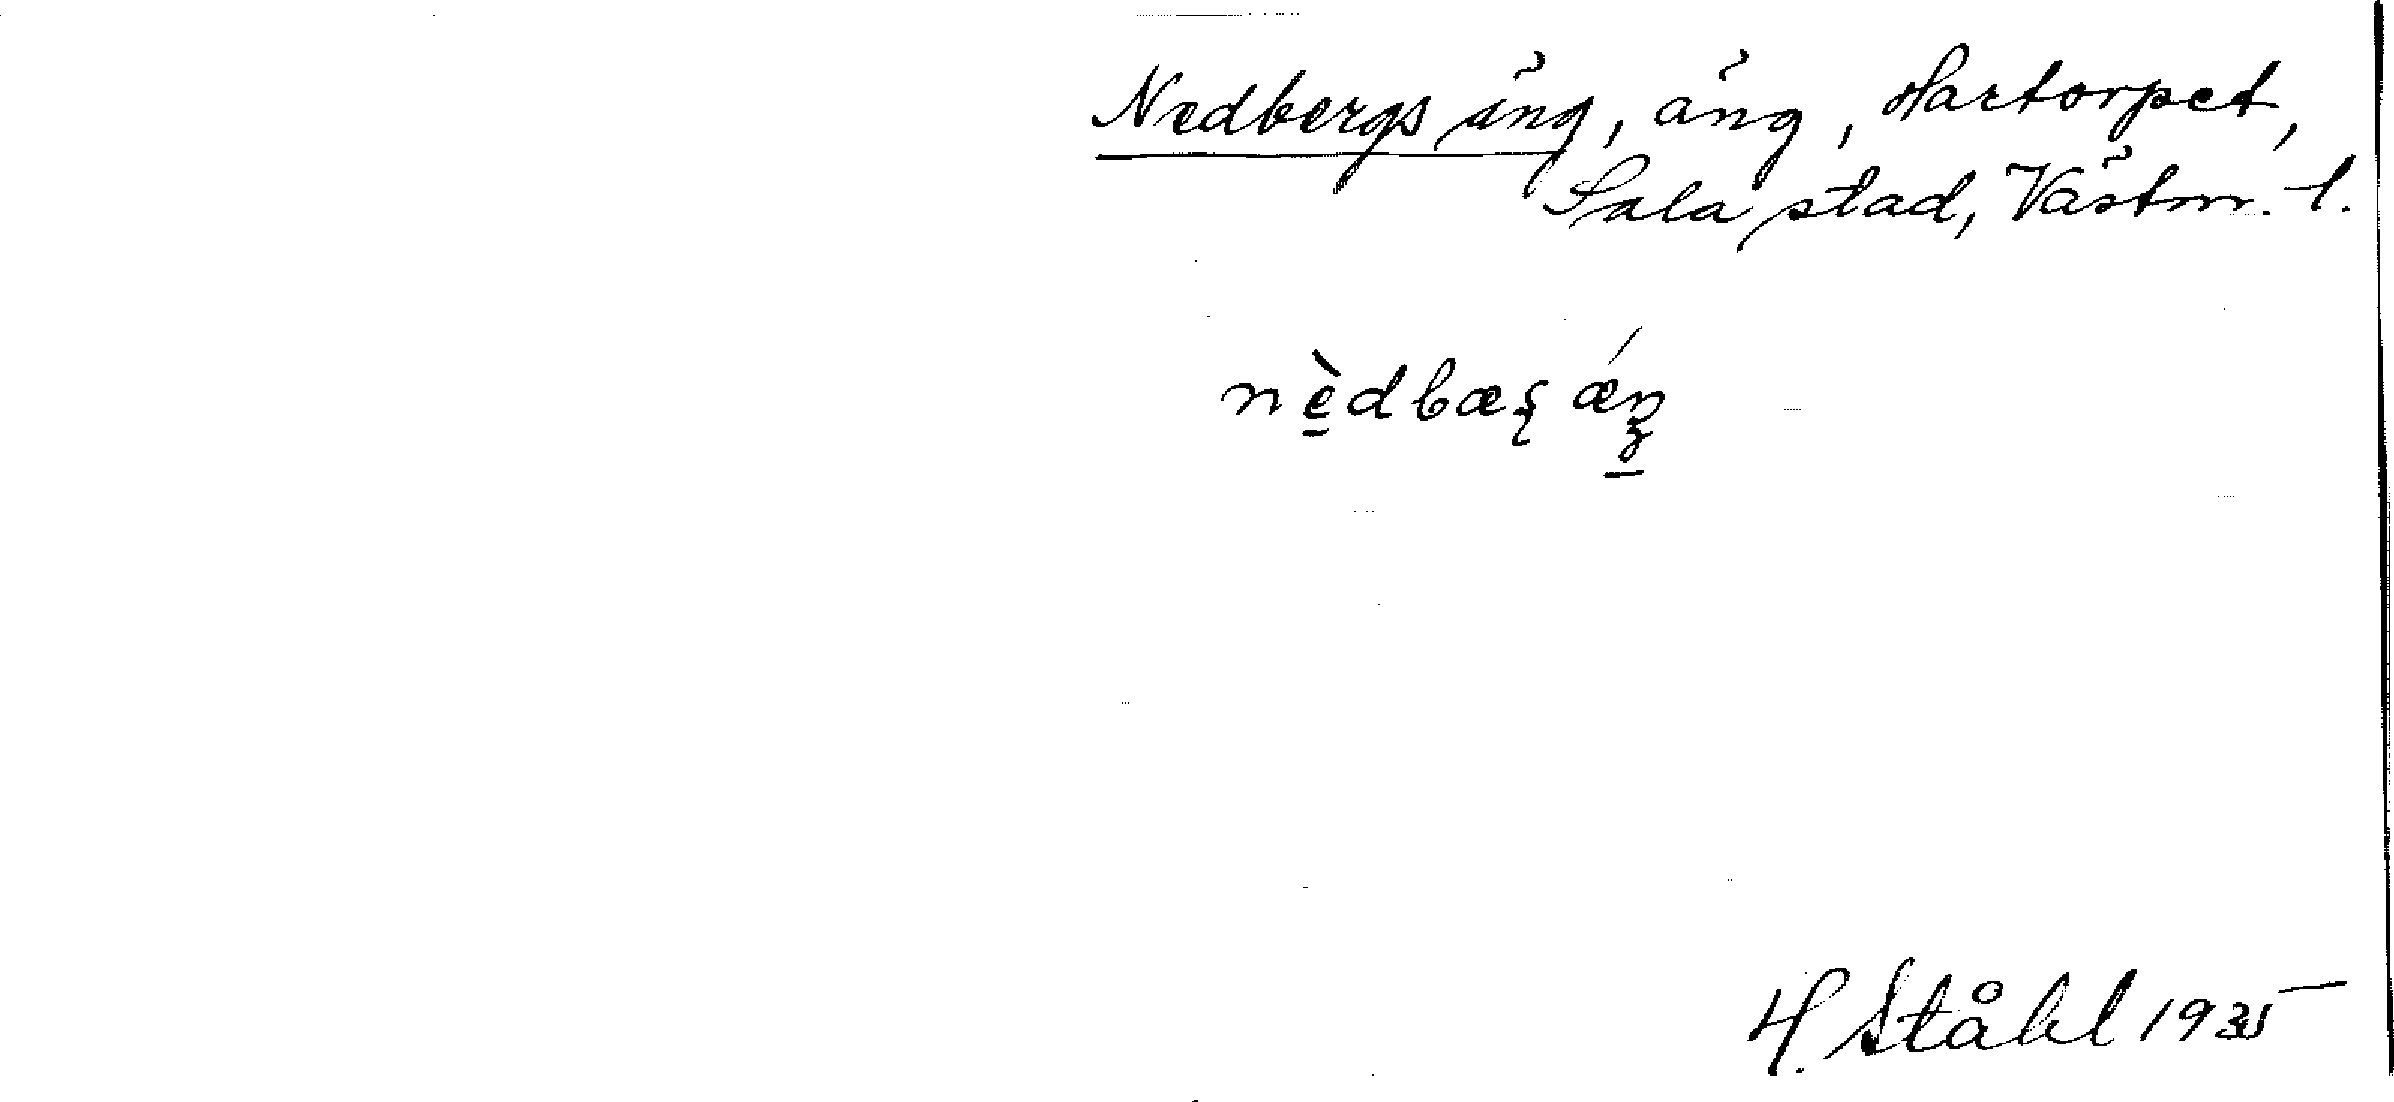 Nedbergs äng, äng, Hartorpet,
Sala stad, Västm. l.
nè̱dbæʂ ǽŋ̱
H. Ståhl 1935